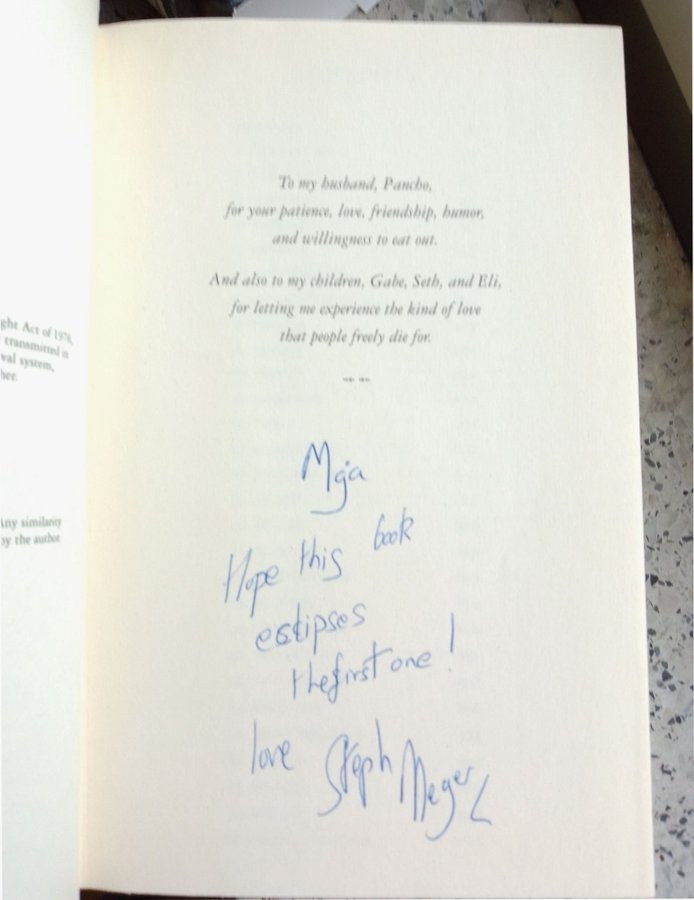 ght Act of 1976,
transmitted in
val system,
her.
Any similarity
by the author
To my husband, Pancho,
for your patience, love, friendship, humor,
and willingness to eat out.
And also to my children, Gabe, Seth, and Eli,
for letting me experience the kind of love
that people freely die for.
Mja
Hope this book
esclipses
the first one!
love Steph Meyer